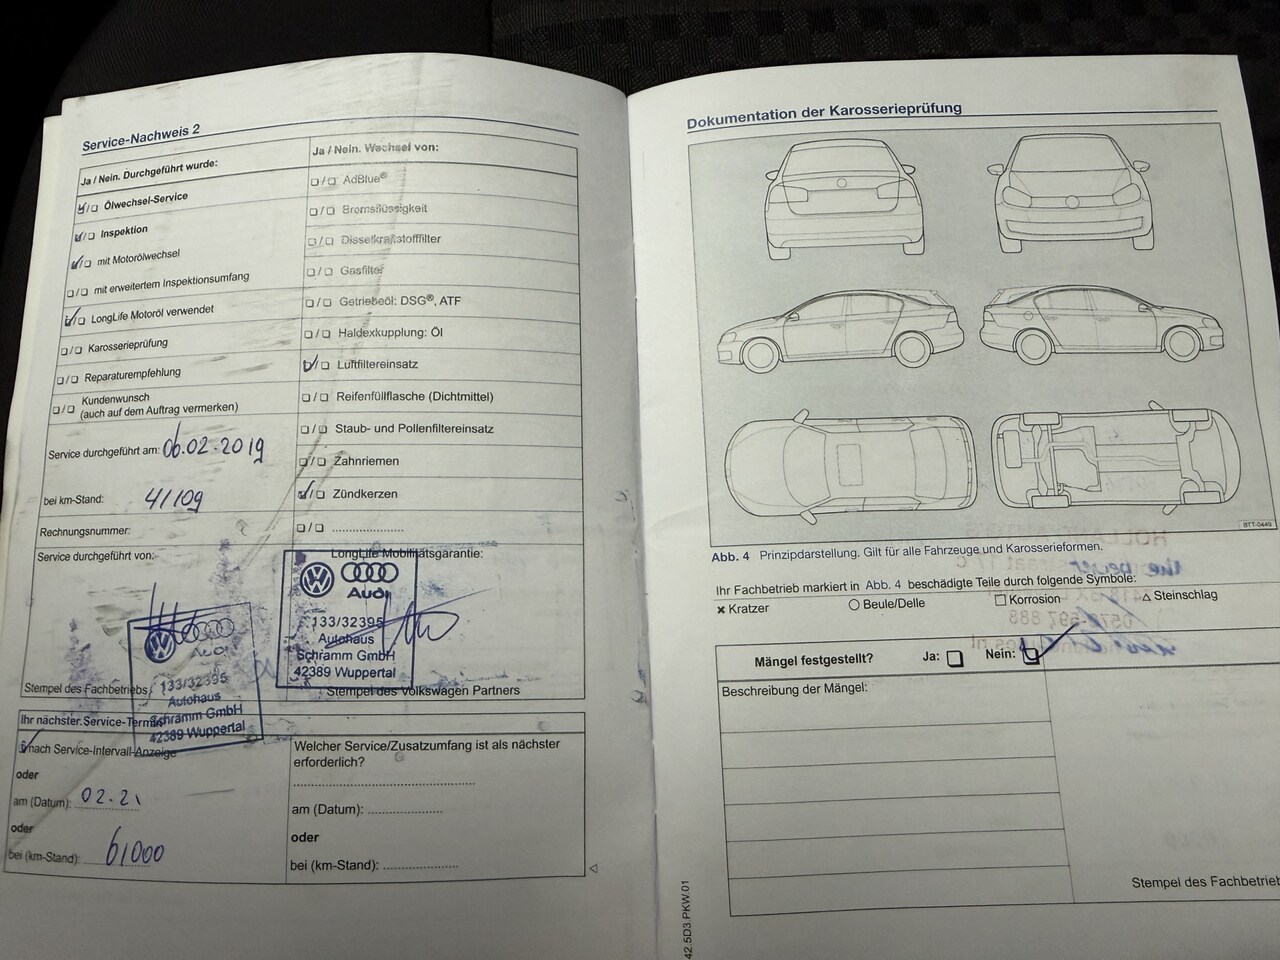 Service-Nachweis 2
Ja / Nein. Durchgeführt wurde:
Ölwechsel-Service
Inspektion
mit Motorölwechsel
mit erweitertem Inspektionsumfang
LongLife Motoröl verwendet
Karosserieprüfung
Reparaturempfehlung
Kundenwunsch
(auch auf dem Auftrag vermerken)
Service durchgeführt am: 06.02.2019
bei km-Stand: 41109
Rechnungsnummer:
Service durchgeführt von:
Audi
133/32395
Autohaus
Schramm GmbH
42389 Wuppertal
Stempel des Fachbetriebs
Ja / Nein. Wechsel von:
AdBlue®
Bremsflüssigkeit
Dieselkraftstofffilter
Gasfilter
Getriebeöl: DSG®, ATF
Haldexkupplung: Öl
Luftfiltereinsatz
Reifenfüllflasche (Dichtmittel)
Staub- und Pollenfiltereinsatz
Zahnriemen
Zündkerzen
LongLife Mobilitätsgarantie:
Audi
133/32395
Autohaus
Schramm GmbH
42389 Wuppertal
Stempel des Volkswagen Partners
Ihr nächster Service-Termin
nach Service-Intervall-Anzeige
oder
am (Datum): 02.21
oder
bei (km-Stand): 61000
Welcher Service/Zusatzumfang ist als nächster
erforderlich?
am (Datum):
oder
bei (km-Stand):
Dokumentation der Karosserieprüfung
BTT-0449
Abb. 4 Prinzipdarstellung. Gilt für alle Fahrzeuge und Karosserieformen.
Ihr Fachbetrieb markiert in Abb. 4 beschädigte Teile durch folgende Symbole:
Kratzer Beule/Delle Korrosion Steinschlag
Mängel festgestellt? Ja: Nein:
Beschreibung der Mängel:
Stempel des Fachbetrieb
42.5D3.PKW.01